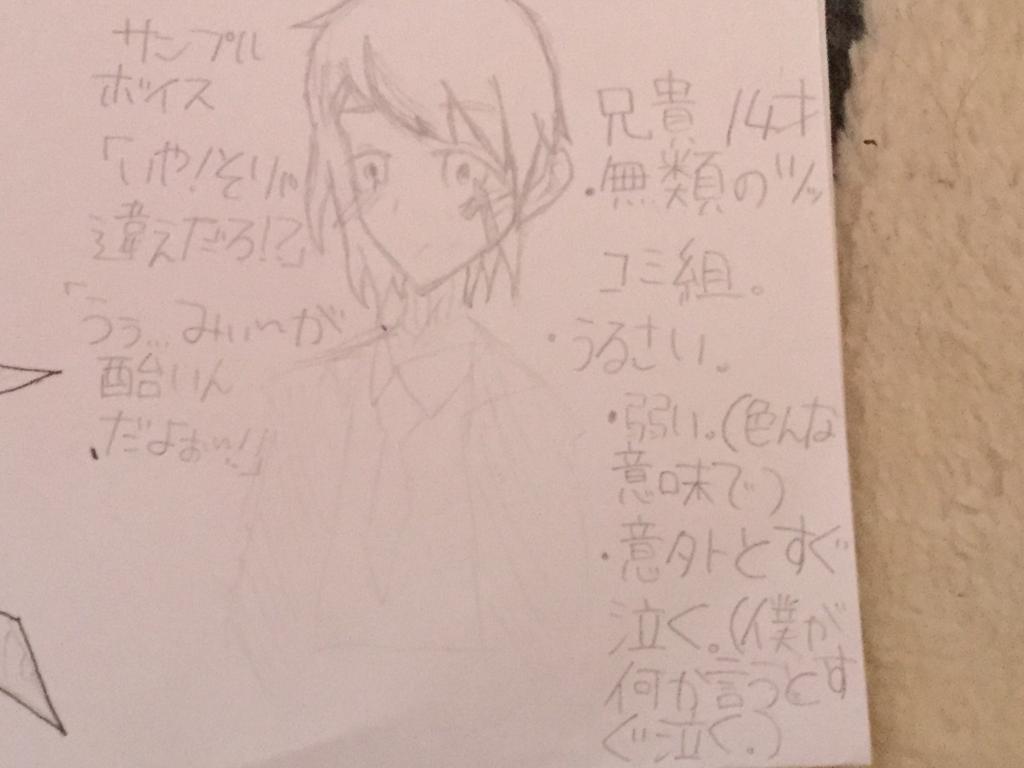 サンプル
ボイス
「いや!そりゃ
違えだろ!?」
「うぅ…みぃ〜が
酷いん
だよぉぃ!」
兄貴 14才
・無類のツッ
コミ組。
・うるさい。
・弱い。(色んな
意味で)
・意外とすぐ
泣く。(僕が
何か言うとす
ぐ泣く。)